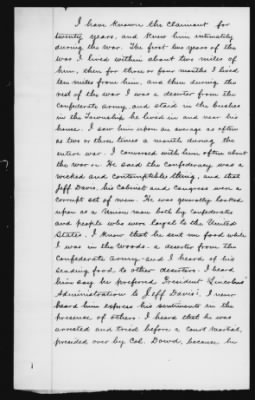 I have known the claimant for
twenty years, and knew him intimately
during the war. The first two years of the
war I lived within about two miles of
him, then for three or four months I lived
ten miles from him, and then during the
rest of the war I was a deserter from the
Confederate army, and staid in the bushes
in the Township he lived in and near his
house. I saw him upon an average as often
as two or three times a month during the
entire war. I conversed with him often about
the war. He said the Confederacy was a
wicked and contemptible thing, and that
Jeff Davis, his Cabinet and Congress were a
corrupt set of men. He was generally looked
upon as a Union man both by Confederates
and people who were loyal to the United
States. I know that he sent me food while
I was in the woods - a deserter from the
Confederate army - and I heard of his
sending food to other deserters. I heard
him say he preferred President Lincolns'
Administration to Jeff Davis'. I never
heard him express his sentiments in the
presence of others. I heard that he was
arrested and tried before a court martial,
presided over by Col. Dowd, because he